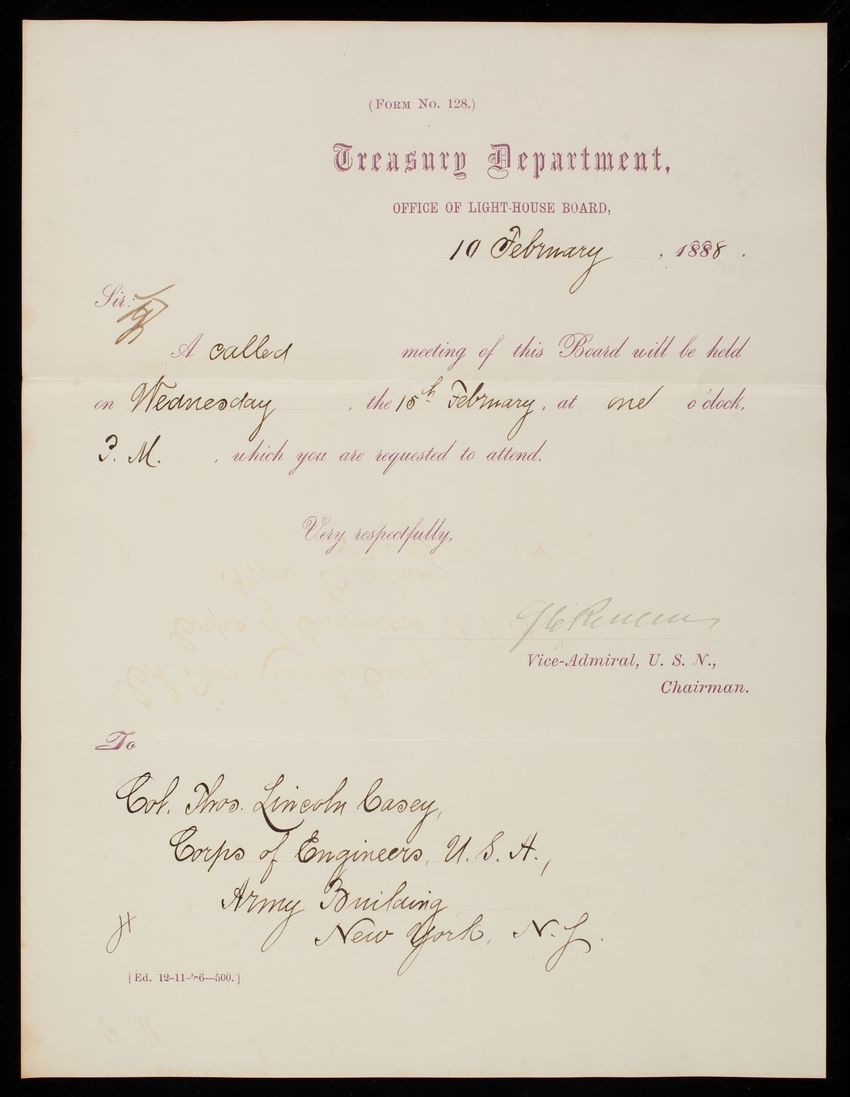 (FORM NO. 128.)
Treasury Department,
OFFICE OF LIGHT-HOUSE BOARD,
10 February, 1888.
Sir:
A called meeting of this Board will be held
on Wednesday, the 15th February, at one o'clock,
P. M., which you are requested to attend.
Very respectfully,
Vice-Admiral, U. S. N.,
Chairman.
To
Col. Thos. Lincoln Casey,
Corps of Engineers, U. S. A.,
Army Building
New York, N. Y.
[Ed. 12-11-'86—500.]